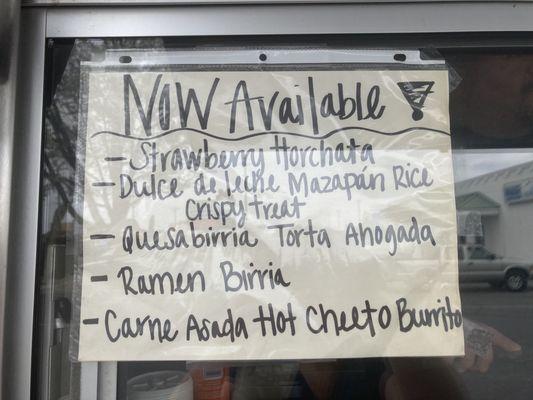 Now Available!
- Strawberry Horchata
- Dulce de leche Mazapán Rice
Crispy treat
- Quesabirria Torta Ahogada
- Ramen Birria
- Carne Asada Hot Cheeto Burrito